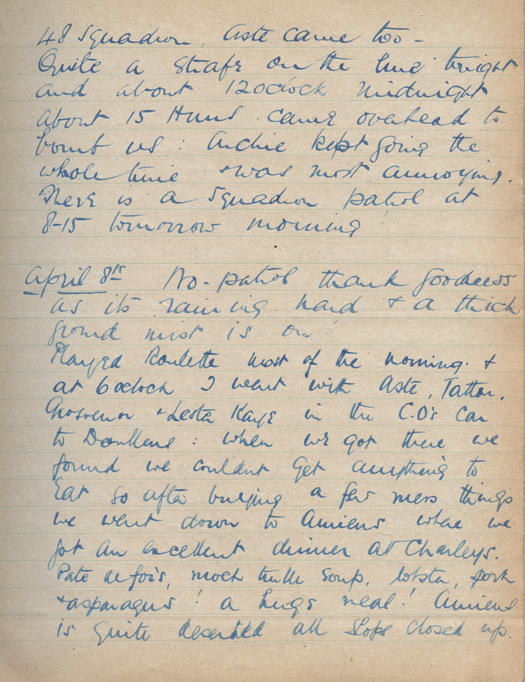 48 Squadron, Aste came too -
Quite a strafe on the line tonight
and about 12 oclock midnight
about 15 Huns came overhead to
bomb us : Archie kept going the
whole time & was most annoying.
There is a Squadron patrol at
8-15 tomorrow morning!
April 8th No-patrol thank goodness
as its raining hard & a thick
ground mist is on
Played Roulette most of the morning. &
at 6 oclock I went with Aste, Tatton,
Grosvenor & Lesta Kaye in the C.O's Car
to Doullens : when we got there we
found we couldnt get anything to
Eat so after buying a few mess things
we went down to Amiens where we
got an excellent dinner at Charleys.
Pate de fois, mock turtle soup, lobster, pork
& asparagus! a huge meal! Amiens
is quite deserted all Sops closed up.